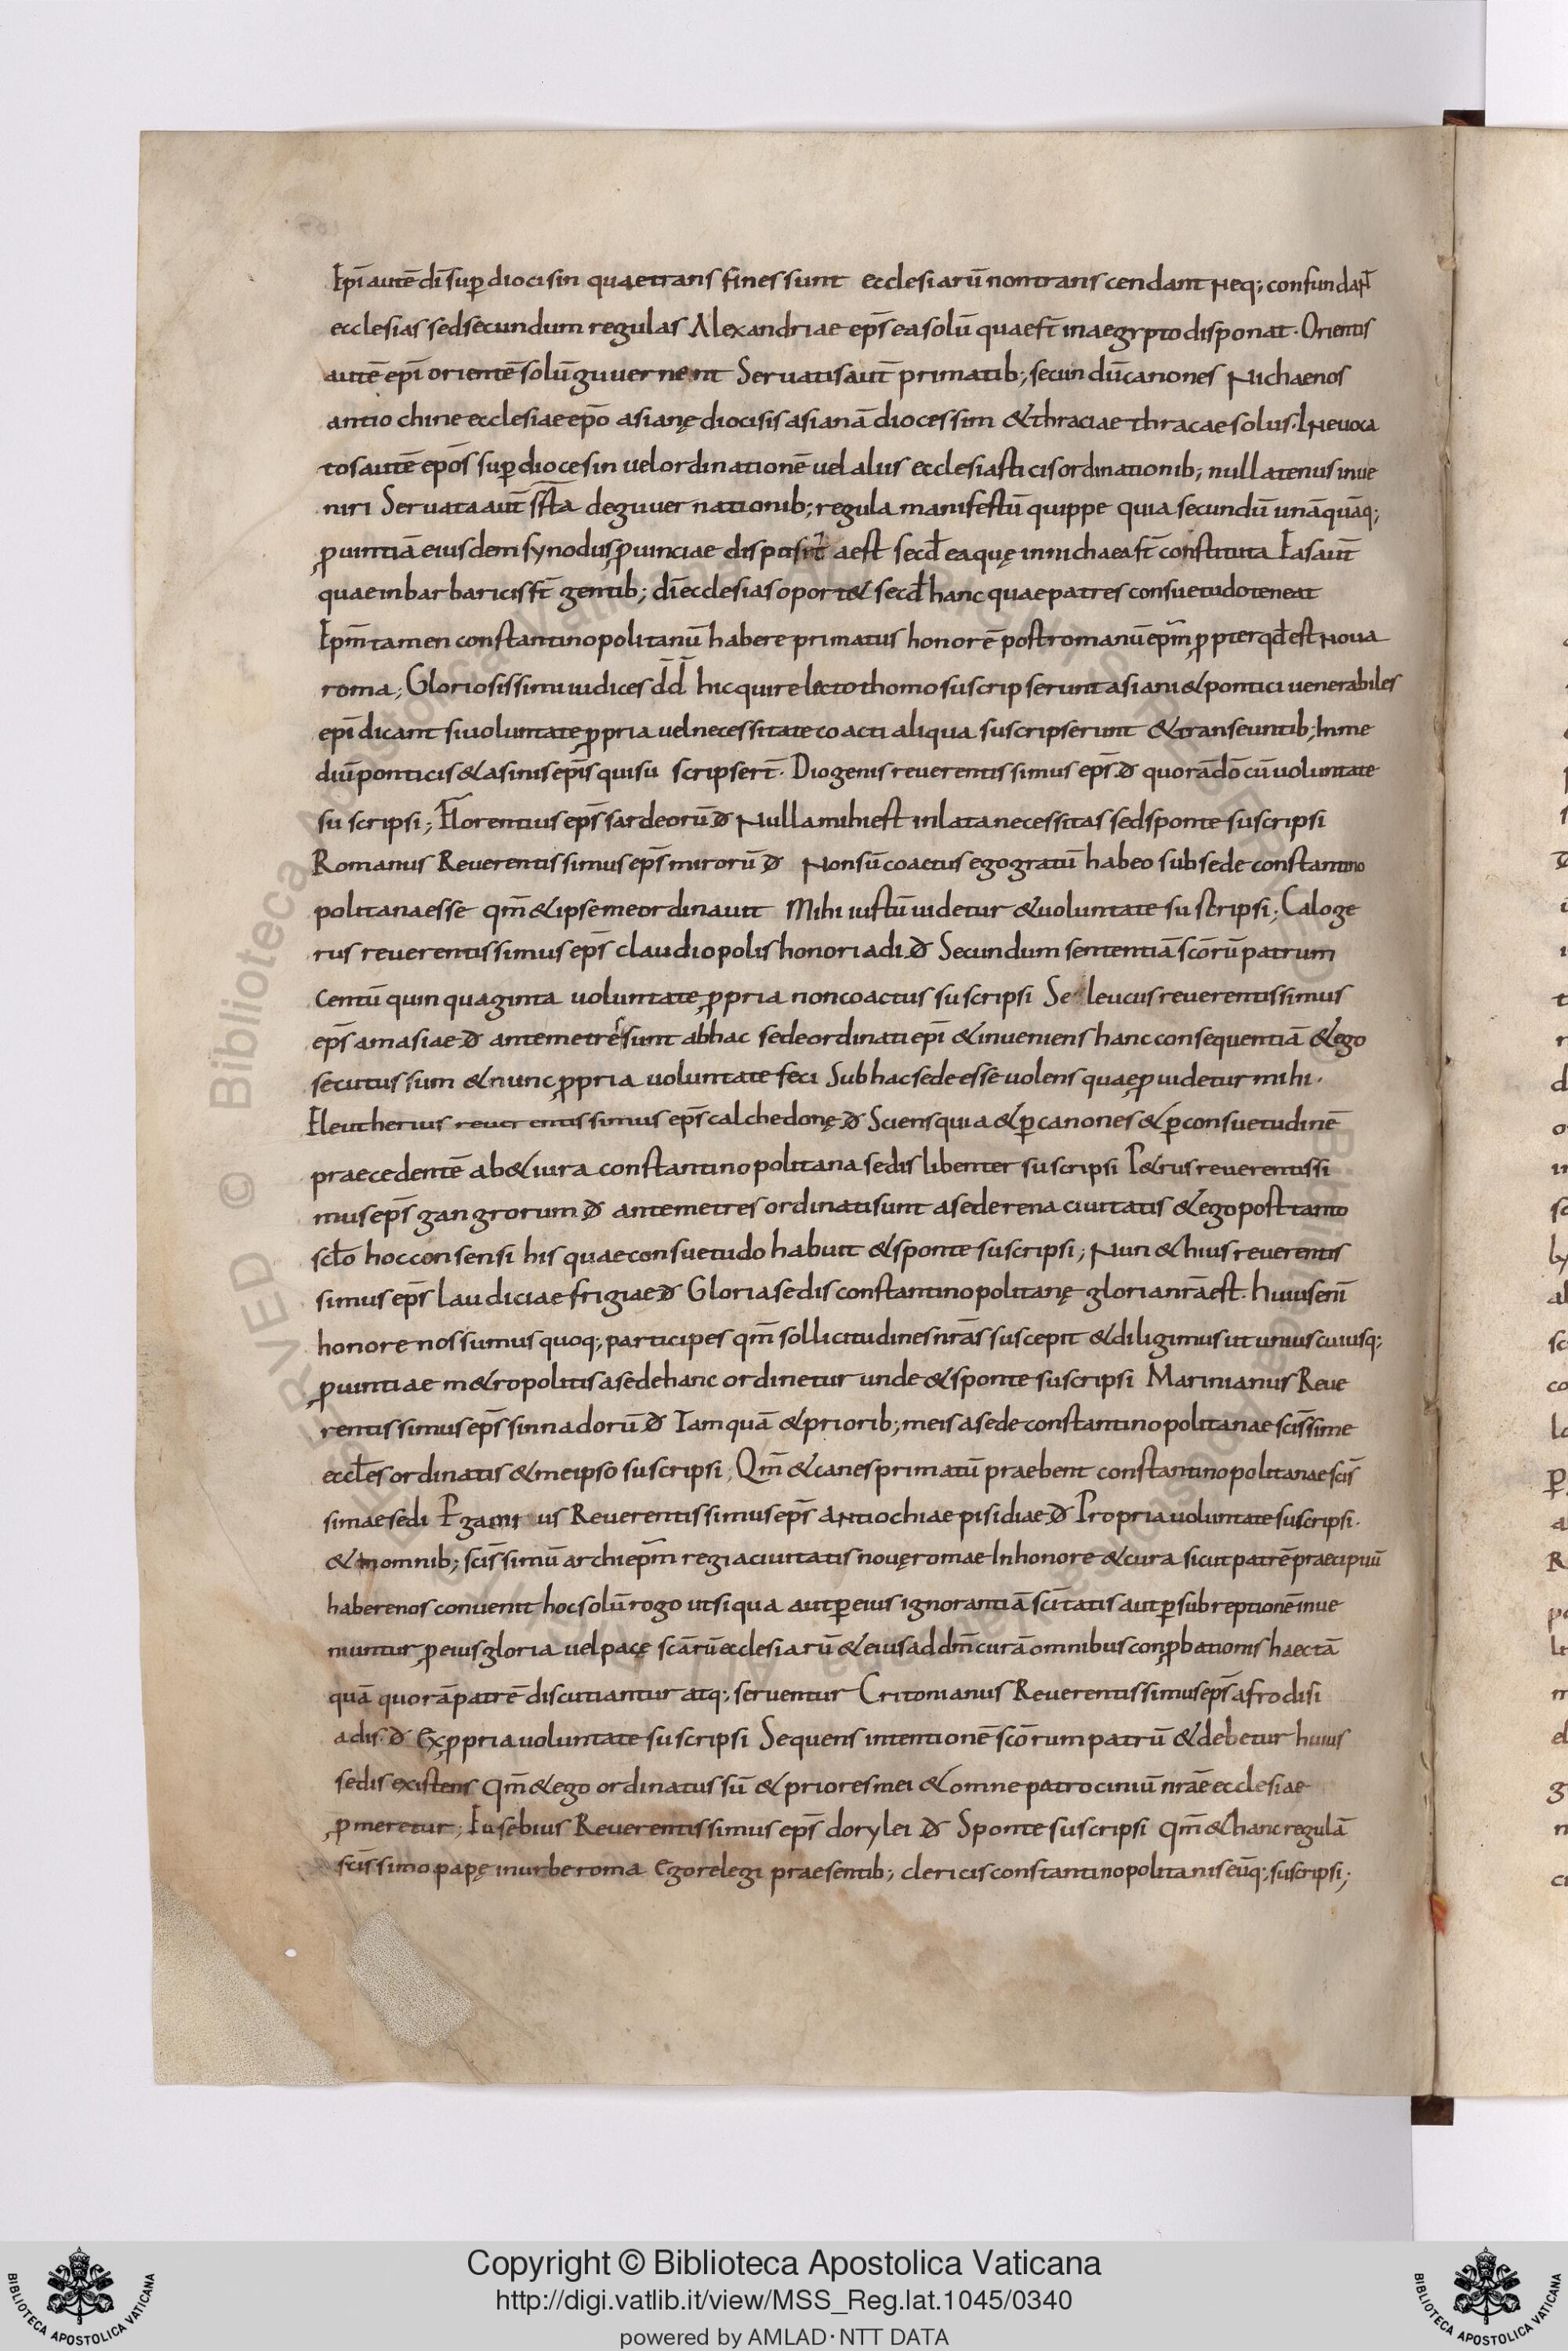 Epī autē dī sup diocisin quae trans fines sunt ecclesiarū non transcendant Neq; confundant̄
ecclesias sed secundum regulas Alexandriae ep̄s ea solū quae s̄t in aegypto disponat. Orientis
autē epī orientē solū guvernent Servatis aut̄ primatib; secundū canones Nichaenos
antiochine ecclesiae epō asianę diocisis asianā diocessim & thraciae thracae solus. INevoca
tos autē epōs sup diocesin vel ordinationē vel aliis ecclesiasticis ordinationib; nullatenus inve
niri Servata aut̄ de guvernationib; regula manifestū quippe quia secundū unāquāq;
ꝓvintiā eiusdem synodus ꝓvinciae aest secd̄ ea quę in nichaea s̄t constituta Eas aut̄
quae in barbaricis s̄t gentib; dī ecclesias oport& secd̄ hanc quae patres consuetudo teneat
Ep̄m tamen constantinopolitanū habere primatus honorē post romanū ep̄m ꝓpter qd̄ est Nova
roma; Gloriosissimi iudices d̄d̄ hic qui relecto thomo suscripserunt asiani & pontici venerabiles
epī dicant si voluntate ꝓpria vel necessitate coacti aliqua suscripserunt & transeuntib; In me
diū ponticis & asinis epīs qui su scripser̄t. Diogenis reverentissimus ep̄s d̄ quorā dō cū voluntate
suscripsi; Florentius ep̄s sardeorū d̄ Nulla mihi est inlata necessitas sed sponte suscripsi
Romanus Reverentissimus ep̄s mirorū d̄ Non sū coactus ego gratū habeo sub sede constantino
politana esse qm̄ & ipse me ordinavit Mihi iustū videtur & voluntate suscripsi; Caloge
rus reverentissimus ep̄s claudiopolis honoriadi d̄ Secundum sententiā scōrū patrum
centū quinquaginta voluntate ꝓpria non coactus suscripsi Seleucus reverentissimus
ep̄s amasiae d̄ ante me tres sunt ab hac sede ordinati epī & inveniens hanc consequentiā & ego
secutus sum & nunc ꝓpria voluntate feci Sub hac sede esse volens quae ꝓvidetur mihi.
Eleutherius reverentissimus ep̄s calchedonę d̄ Sciens quia & p canones & p consuetudinē
praecedentē ab& iura constantinopolitana sedis libenter suscripsi P&rus reverentissi
mus ep̄s gangrorum d̄ ante me tres ordinati sunt a sede rena civitatis & ego post tanto
sclo hoc consensi his quae consuetudo habuit & sponte suscripsi; Nun&hius reverentis
simus ep̄s laudiciae frigiae d̄ Gloria sedis constantinopolitanę gloria nr̄a est. huius enī
honore nos sumus quoq; participes qm̄ sollicitudines nr̄as suscepit & diligimus ut uniuscuiusq;
ꝓvintiae m&ropolitis a sede hanc ordinetur unde & sponte suscripsi Marinianus Reve
rentissimus ep̄s sinnadorū d̄ Tamquā & priorib; meis a sede constantinopolitanae scīssime
eccl̄es ordinatis & me ipso suscripsi; Qm̄ & canes primatū praebent constantinopolitanae scīs
simae sedi us Reverentissimus ep̄s antiochiae pisidiae d̄ Propria voluntate suscripsi.
& in omnib; scīssimū archiep̄m regia civitatis novę romae In honore & cura sicut patrē praecipuū
habere nos convenit hoc solū rogo ut si qua aut p eius ignorantiā scītatis aut p subreptionē inve
niuntur ꝓ eius gloria vel pace scārū ecclesiarū & eius ad dm̄ curā omnibus conꝓbationis haec tā
quā quorā patrē discutiantur atq; serventur Critonianus Reverentissimus ep̄s afrodisi
adis. d̄ Ex ꝓpria voluntate suscripsi Sequens intentionē scōrum patrū & debetur huius
sedis existens qm̄ & ego ordinatus sū & priores mei & omne patrociniū nr̄ae ecclesiae
ꝓmeretur; Eusebius Reverentissimus ep̄s dorylei d̄ Sponte suscripsi qm̄ & hanc regulā
scīssimo papę in urbe roma Ego relegi praesentib; clericis constantinopolitanis eūq; suscripsi;
Copyright © Biblioteca Apostolica Vaticana
http://digi.vatlib.it/view/MSS_Reg.lat.1045/0340
powered by AMLAD·NTT DATA